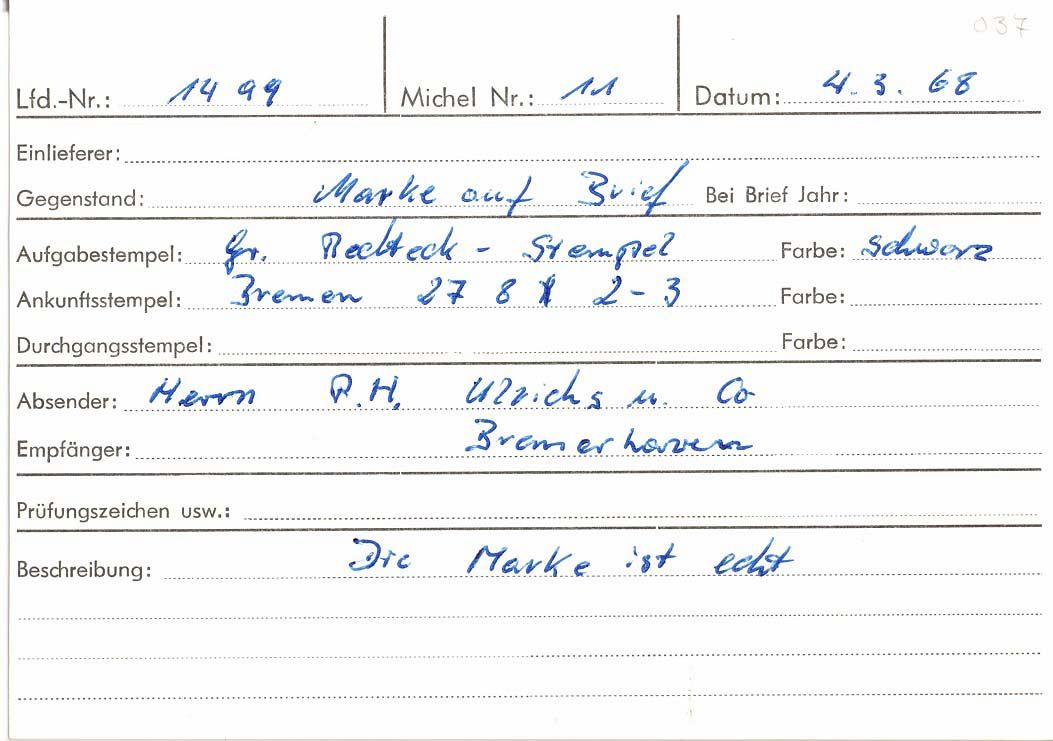 037
Lfd.-Nr.: 1499 Michel Nr.: 11 Datum: 4.3.68
Einlieferer:
Gegenstand: Marke auf Brief Bei Brief Jahr:
Aufgabestempel: gr. Rechteck - Stempel Farbe: schwarz
Ankunftsstempel: Bremen 27 8 2-3 Farbe:
Durchgangsstempel: Farbe:
Absender: Herrn P.H. Ulrichs u. Co
Empfänger: Bremerhaven
Prüfungszeichen usw.:
Beschreibung: Die Marke ist echt